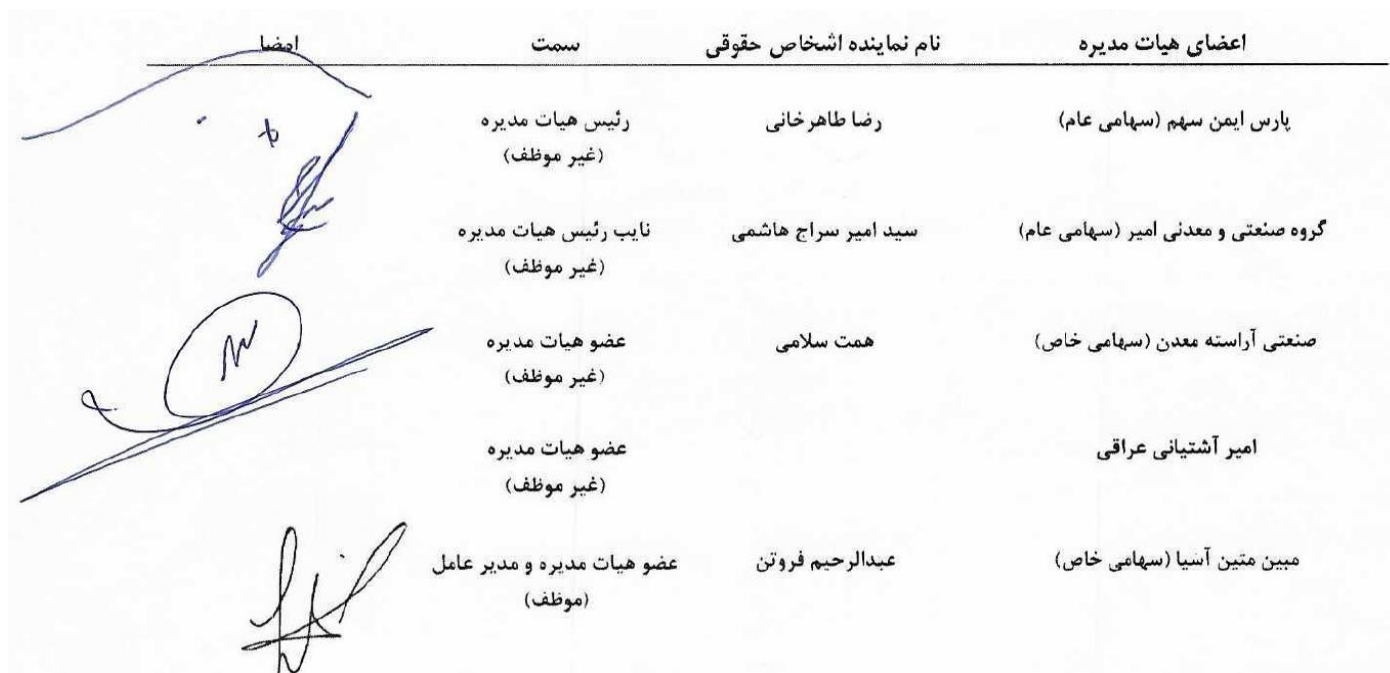 اعضای هیات مدیره نام نماینده اشخاص حقوقی سمت امضا
پارس ایمن سهم (سهامی عام) رضا طاهرخانی رئیس هیات مدیره
(غیر موظف)
گروه صنعتی و معدنی امیر (سهامی عام) سید امیر سراج هاشمی نایب رئیس هیات مدیره
(غیر موظف)
صنعتی آراسته معدن (سهامی خاص) همت سلامی عضو هیات مدیره
(غیر موظف)
امیر آشتیانی عراقی عضو هیات مدیره
(غیر موظف)
مبین متین آسیا (سهامی خاص) عبدالرحیم فروتن عضو هیات مدیره و مدیر عامل
(موظف)